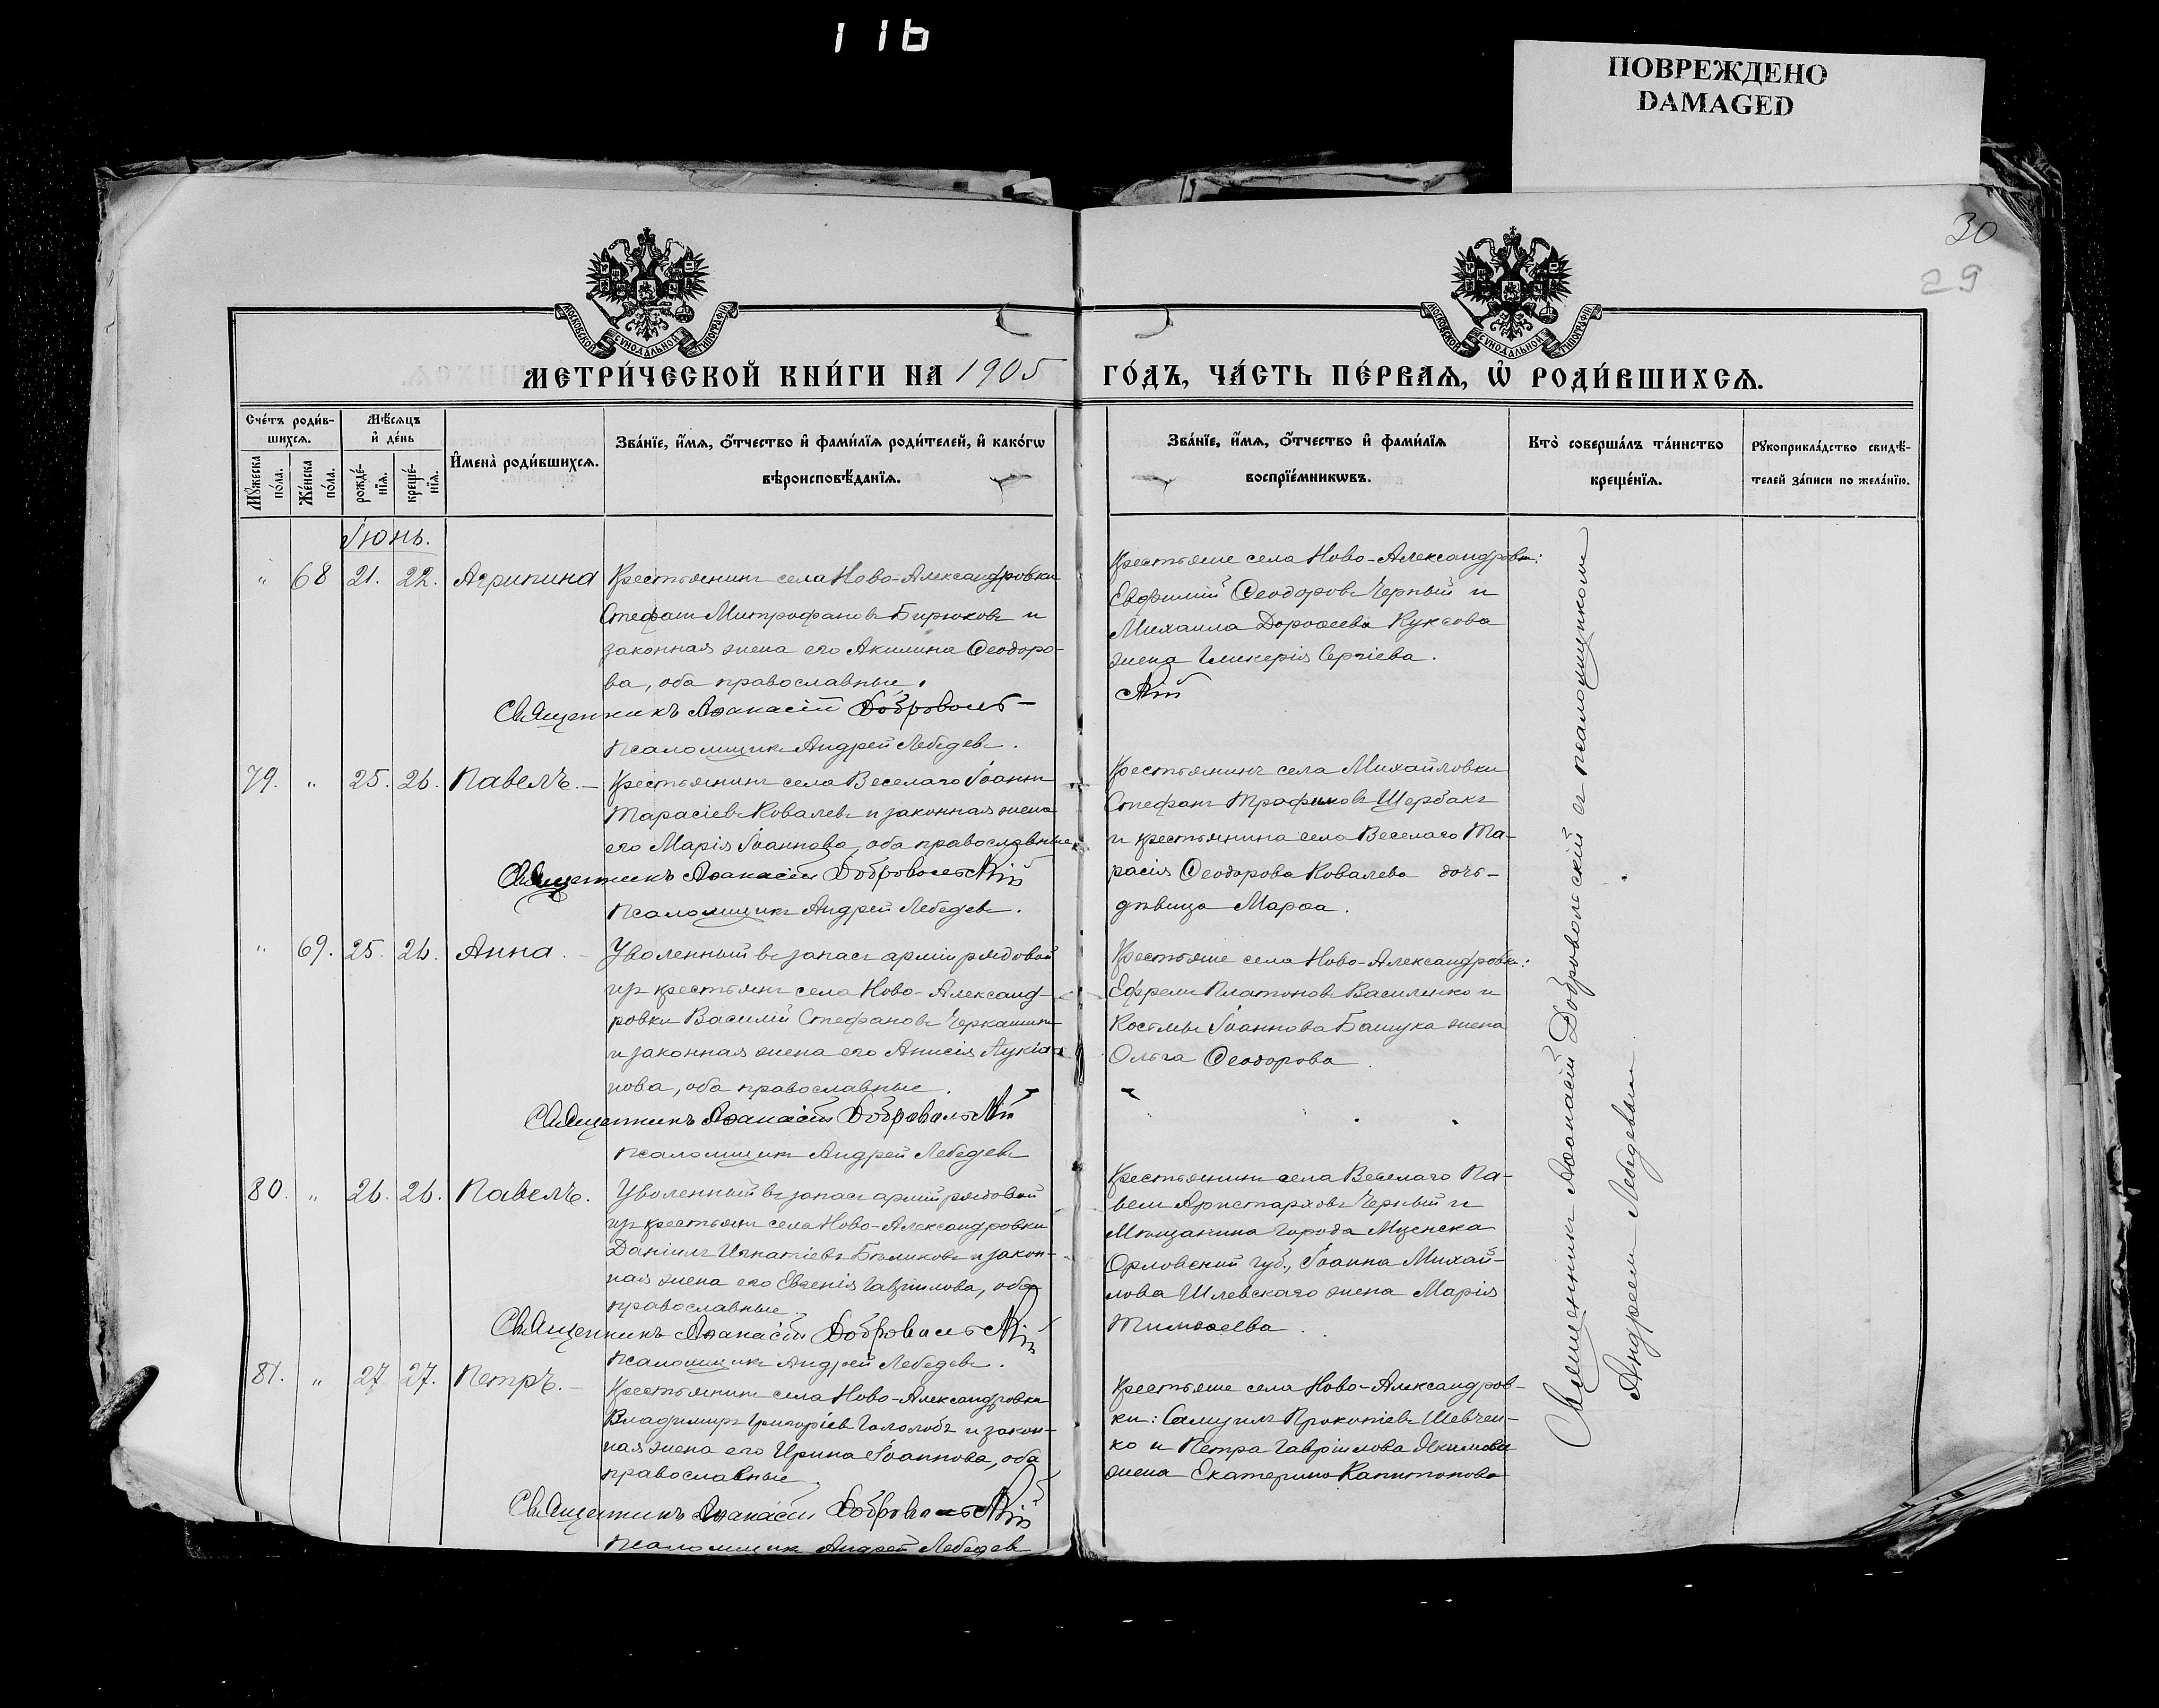 116
ПОВРЕЖДЕНО
DAMAGED
30
29
МОСКОВСКОЙ СѴНОДАЛЬНОЙ ТИПОГРАФІИ
МОСКОВСКОЙ СѴНОДАЛЬНОЙ ТИПОГРАФІИ
МЕТРИ́ЧЕСКОЙ КНИ́ГИ НА 1905 ГО́ДЪ, ЧА́СТЬ ПЕ́РВАѦ, Ѡ҆ РОДИ́ВШИХСѦ.
Сче́тъ роди́в-
шихсѧ.
Мѣ́сѧцъ
и҆ де́нь
Мꙋ́жеска по́ла.
Же́нска по́ла.
рожде́-
нїѧ.
креще́-
нїѧ.
И҆мена̀ роди́вшихсѧ.
Зва́нїе, и҆́мѧ, ѻ҆́тчество и҆ фами́лїѧ роди́телей, и҆ како́гѡ
вѣроисповѣ́данїѧ.
Зва́нїе, и҆́мѧ, ѻ҆́тчество и҆ фами́лїѧ
воспрїе́мникѡвъ.
Кто̀ соверша́лъ та́инство
креще́нїѧ.
Рꙋкоприкла́дство свидѣ́-
телей за́писи по жела́нїю.
Іюнь.
" 68 21. 22. Агрипина
Крестьянинъ села Ново-Александровки
Стефанъ Митрофановъ Бирюковъ и
законная жена его Акилина Ѳеодоро-
ва, оба православные.
Священникъ Аѳанасій Добровольскій
Псаломщикъ Андрей Лебедевъ.
Крестьяне села Ново-Александровки:
Евфимій Ѳеодоровъ Черный и
Михаила Дороѳеева Куксова
жена Гликерія Сергіева.
79. " 25. 26. Павелъ.
Крестьянинъ села Веселаго Іоаннъ
Тарасіевъ Ковалевъ и законная жена
его Марія Іоаннова, оба православные.
Священникъ Аѳанасій Добровольскій
Псаломщикъ Андрей Лебедевъ.
Крестьянинъ села Михайловки
Стефанъ Трофимовъ Щербакъ
и крестьянина села Веселаго Та-
расія Ѳеодорова Ковалева дочь-
дѣвица Марѳа.
" 69. 25. 26. Анна.
Уволенный въ запасъ арміи рядовой
изъ крестьянъ села Ново-Александ-
ровки Василій Стефановъ Черкашинъ
и законная жена его Анисія Лукіа-
нова, оба православные.
Священникъ Аѳанасій Добровольскій
Псаломщикъ Андрей Лебедевъ
Крестьяне села Ново-Александровки:
Ефремъ Платоновъ Василенко и
Космы Іоаннова Башука жена
Ольга Ѳеодорова.
80. " 26. 26. Павелъ.
Уволенный въ запасъ арміи рядовой
изъ крестьянъ села Ново-Александровки
Даніилъ Игнатіевъ Бѣликовъ и закон-
ная жена его Евгенія Гавріилова, оба
православные.
Священникъ Аѳанасій Добровольскій
Псаломщикъ Андрей Лебедевъ.
Крестьянинъ села Веселаго Па-
велъ Аристарховъ Черный и
Мѣщанина города Мценска
Орловской губ., Іоанна Михай-
лова Шлевскаго жена Марія
Тимоѳеева.
81. " 27 27. Петръ.
Крестьянинъ села Ново-Александровки
Владимиръ Григоріевъ Гололобъ и закон-
ная жена его Ирина Іоаннова, оба
православные
Священникъ Аѳанасій Добровольскій
Псаломщикъ Андрей Лебедевъ
Крестьяне села Ново-Александров-
ки: Самуилъ Прокопіевъ Шевчен-
ко и Петра Гавріилова Якимова
жена Екатерина Капитонова
Священникъ Аѳанасій Добровольскій съ псаломщикомъ
Андреемъ Лебедевымъ.